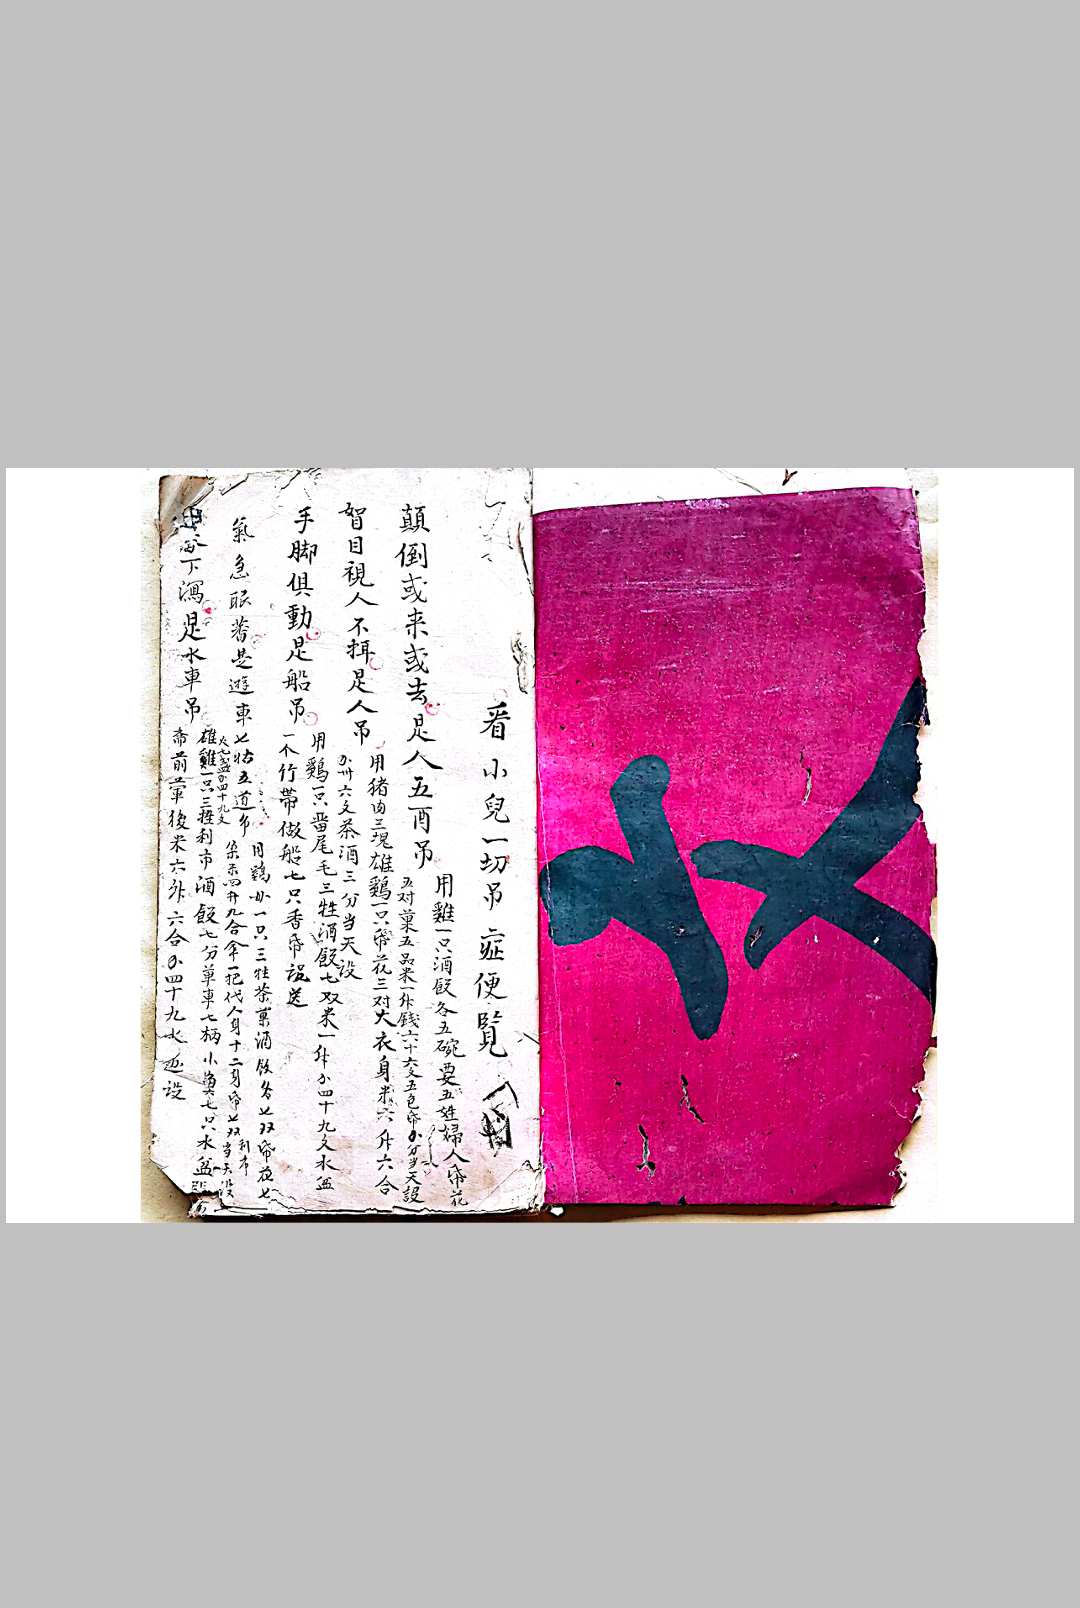 看小兒一切吊症便覧
顛倒或来或去是人五酉吊
用雞一只酒飯各五碗要五姓婦人帋花
五对菓五品米一升錢六十六文五色帋分当天設
智目視人不揖是人吊
用猪肉三塊雄鷄一只帋花三对大衣身米六升六合
卅六文茶酒三分当天设
手脚俱動是船吊
用鷄一只畱尾毛三牲酒飯七双米一升四十九文水盆
一个竹帶做船七只香帋説送
氣急眼蓄是遊車七姑五道吊
用鷄一只三牲茶菓酒飯各七双帋花七
米四升九合伞一把代人身十二身帋七双
当天设
下瀉是水車吊
雄雞一只三牲利市酒飯七分草車七柄小魚七只水盆
斋前葷後米六升六合四十九